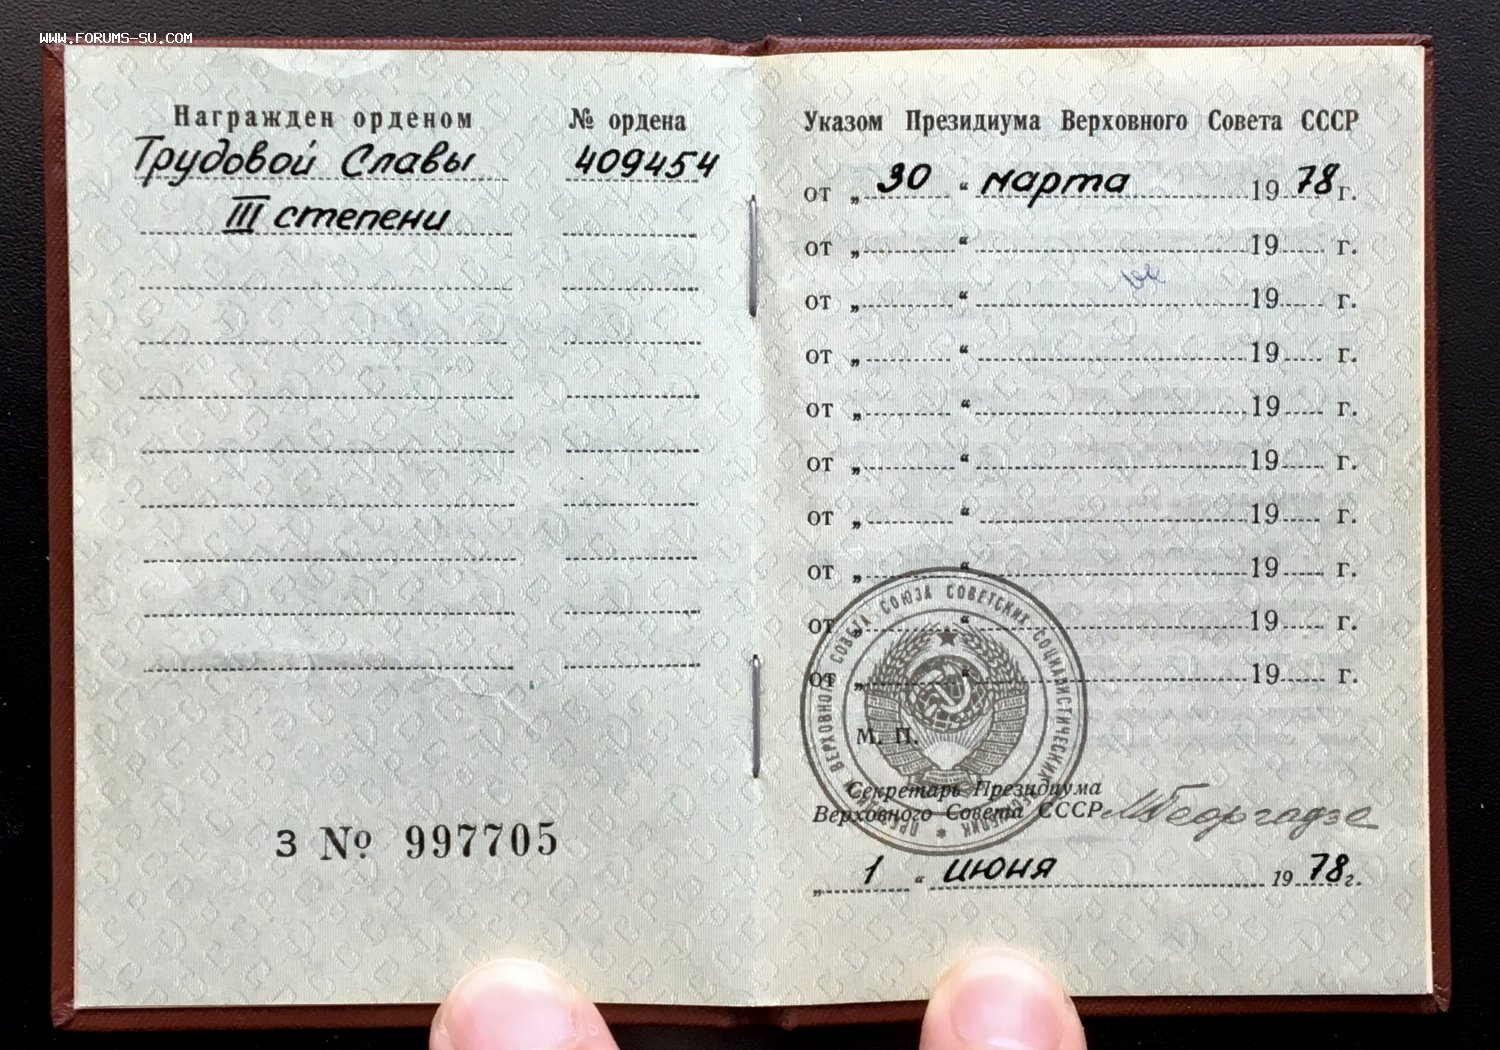 WWW.FORUMS-SU.COM
Награжден орденом
Трудовой Славы
III степени
№ ордена
409454
З № 997705
Указом Президиума Верховного Совета СССР
от „ 30 “ марта 19 78 г.
от „ “ 19 г.
от „ “ 19 г.
от „ “ 19 г.
от „ “ 19 г.
от „ “ 19 г.
от „ “ 19 г.
от „ “ 19 г.
от „ “ 19 г.
от „ “ 19 г.
ПРЕЗИДИУМ ВЕРХОВНОГО СОВЕТА СОЮЗА СОВЕТСКИХ СОЦИАЛИСТИЧЕСКИХ РЕСПУБЛИК
М. П.
Секретарь Президиума
Верховного Совета СССР МГеоргадзе
„ 1 “ июня 19 78 г.